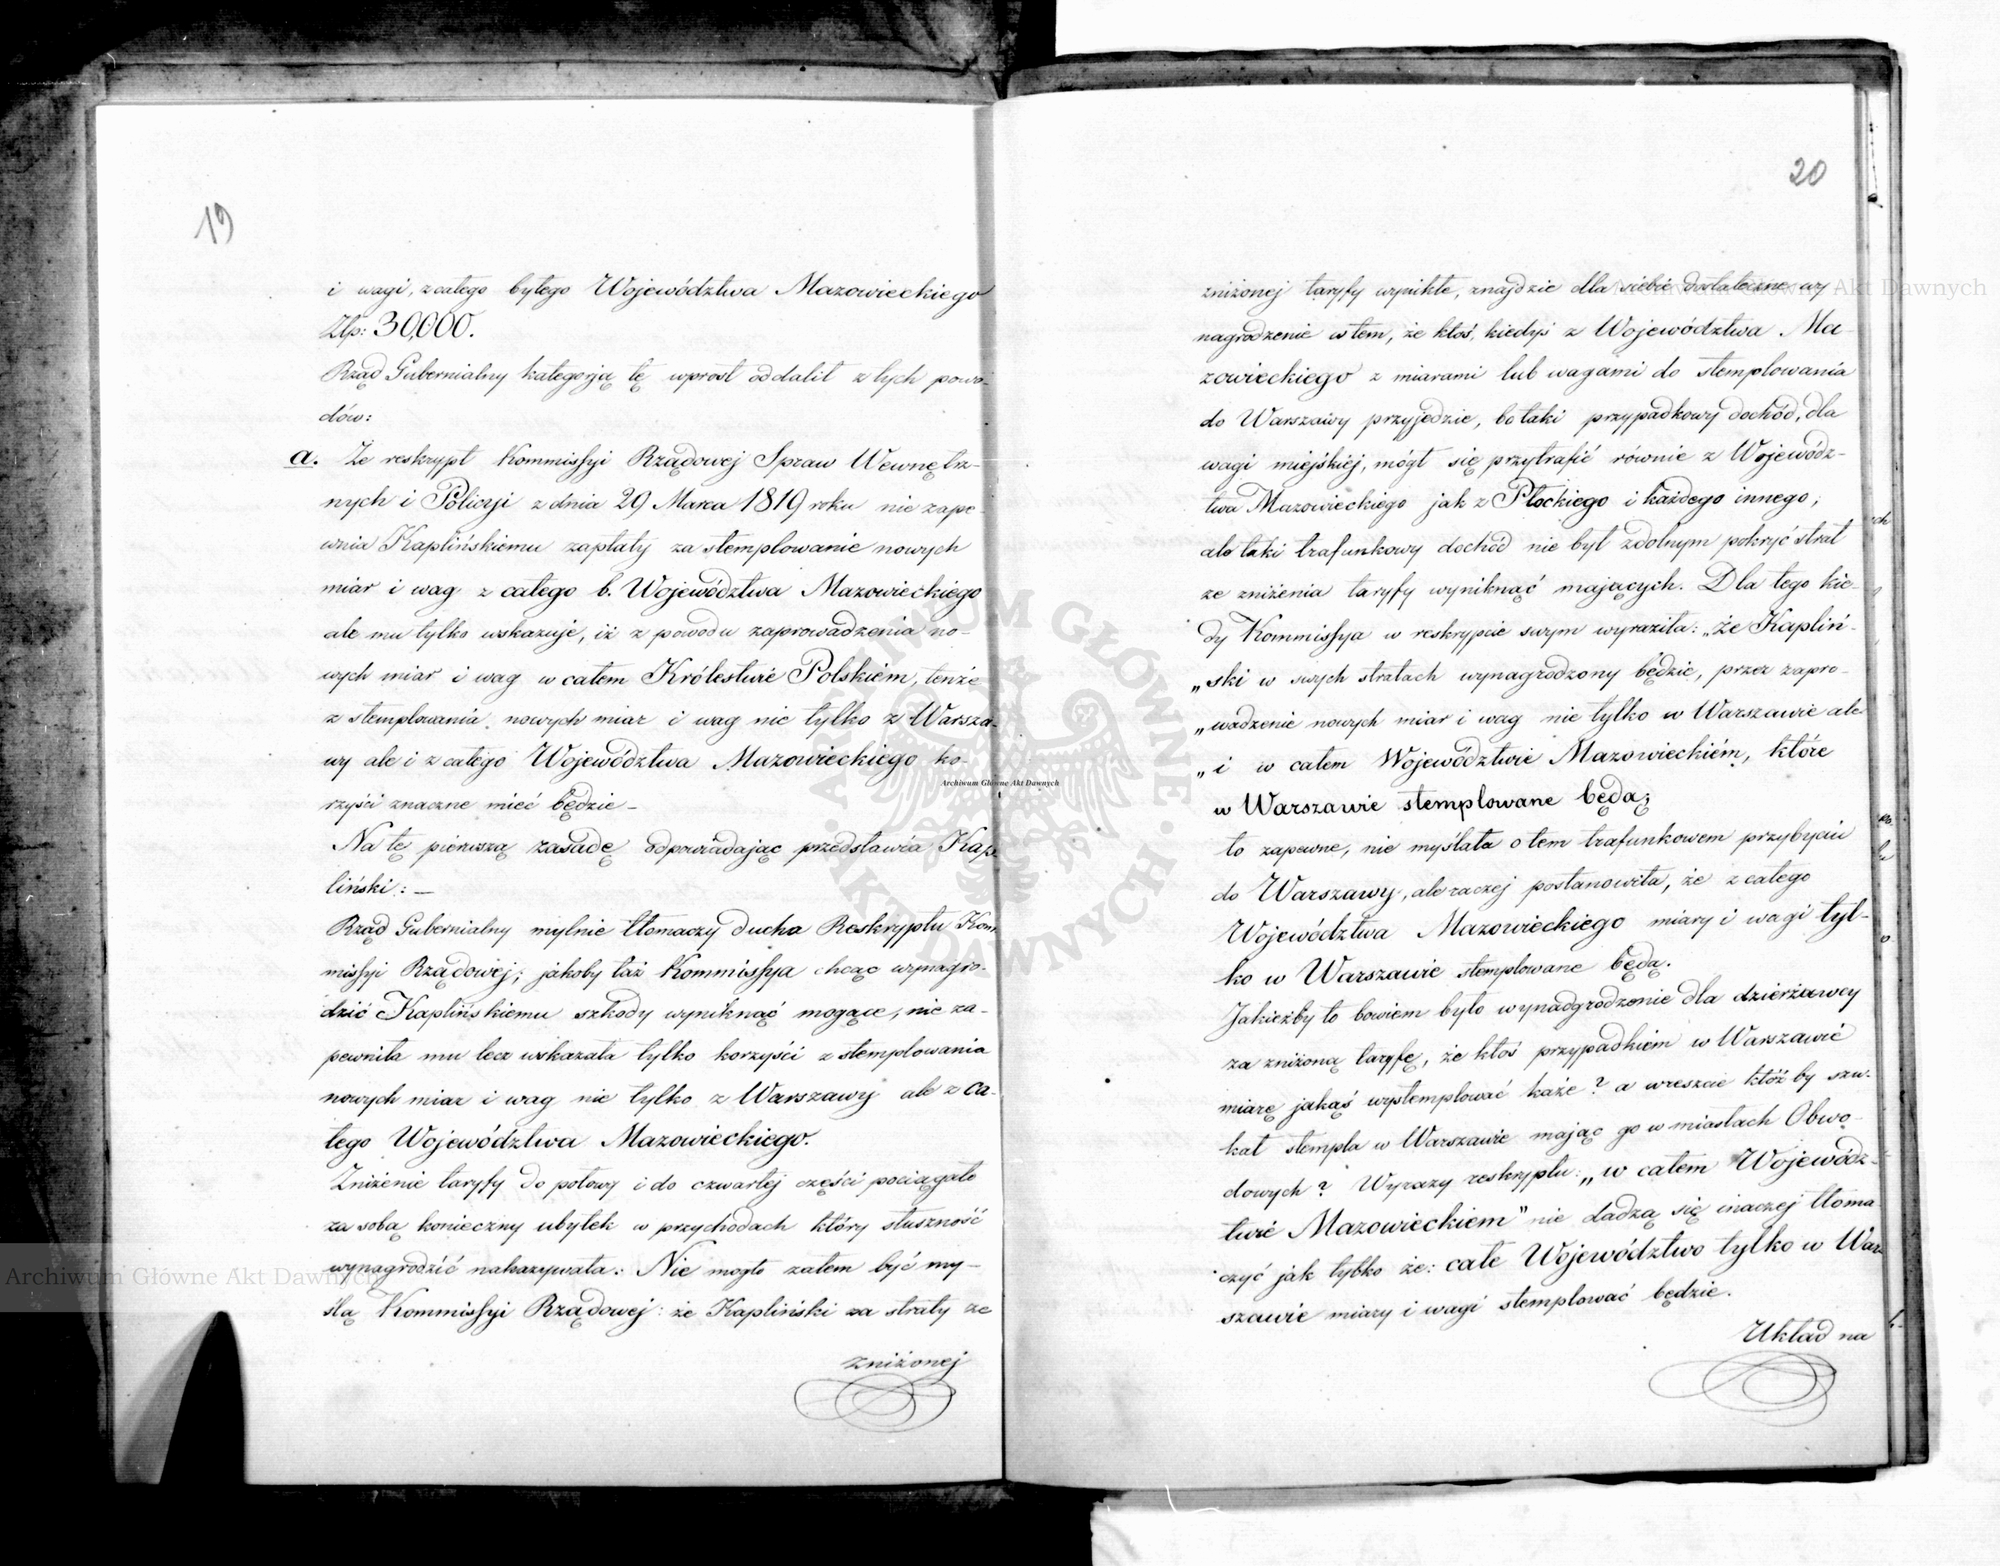 19
i wagi, z całego byłego Województwa Mazowieckiego
Złp: 30,000.
Rząd Gubernialny kategorją tę wprost oddalił z tych powo-
dów:
a. Że reskrypt Kommissyi Rządowej Spraw Wewnętrz-
nych i Policyi z dnia 29 Marca 1819 roku nie zape-
wnia Kaplińskiemu zapłaty za stemplowanie nowych
miar i wag z całego b. Województwa Mazowieckiego
ale mu tylko wskazuje, iż z powodu zaprowadzenia no-
wych miar i wag w całem Królestwie Polskiem, tenże
z stemplowania nowych miar i wag nie tylko z Warsza-
wy ale i z całego Województwa Mazowieckiego ko-
rzyści znaczne mieć będzie –
Na tę pierwszą zasadę odpowiadając przedstawia Kap-
liński: –
Rząd Gubernialny mylnie tłomaczy ducha Reskryptu Kom-
missyi Rządowej; jakoby taż Kommissya chcąc wynagro-
dzić Kaplińskiemu szkody wyniknąć mogące, nie za-
pewniła mu lecz wskazała tylko korzyści z stemplowania
nowych miar i wag nie tylko z Warszawy ale z ca-
łego Województwa Mazowieckiego.
Zniżenie taryfy do połowy i do czwartej części pociągało
za sobą konieczny ubytek w przychodach który słuszność
wynagrodzić nakazywała. Nie mogło zatem być my-
ślą Kommissyi Rządowej: że Kapliński za straty ze
zniżonej
20
zniżonej taryfy wynikłe, znajdzie dla siebie dostateczne wy
nagrodzenie w tem, że ktoś, kiedyś z Województwa Ma-
zowieckiego z miarami lub wagami do stemplowania
do Warszawy przyjedzie, bo taki przypadkowy dochód, dla
wagi miejskiej, mógł się przytrafić równie z Wojewódz-
twa Mazowieckiego jak z Płockiego i każdego innego;
ale taki trafunkowy dochód nie był zdolnym pokryć strat
ze zniżenia taryfy wyniknąć mających. Dla tego kie-
dy Kommissya w reskrypcie swym wyraziła: „że Kapliń-
„ski w swych stratach wynagrodzony będzie, przez zapro-
„wadzenie nowych miar i wag nie tylko w Warszawie ale
„i w całem Województwie Mazowieckiém, które
w Warszawie stemplowane będą;
to zapewne, nie myślała o tem trafunkowem przybyciu
do Warszawy, ale raczej postanowiła, że z całego
Województwa Mazowieckiego miary i wagi tyl-
ko w Warszawie stemplowane będą.
Jakieżby to bowiem było wynadgrodzenie dla dzierżawcy
za zniżoną taryfę, że ktoś przypadkiem w Warszawie
miarę jakąś wystemplować każe? a wreszcie któżby szu-
kał stempla w Warszawie mając go w miastach Obwo-
dowych? Wyrazy reskryptu: „w całem Wojewódz-
twie Mazowieckiem" nie dadzą się inaczej tłoma
czyć jak tylko że: całe Województwo tylko w War-
szawie miary i wagi stemplować będzie.
Układ na
Archiwum Główne Akt Dawnych
Archiwum Główne Akt Dawnych
Archiwum Główne Akt Dawnych
ARCHIWUM GŁÓWNE AKT DAWNYCH